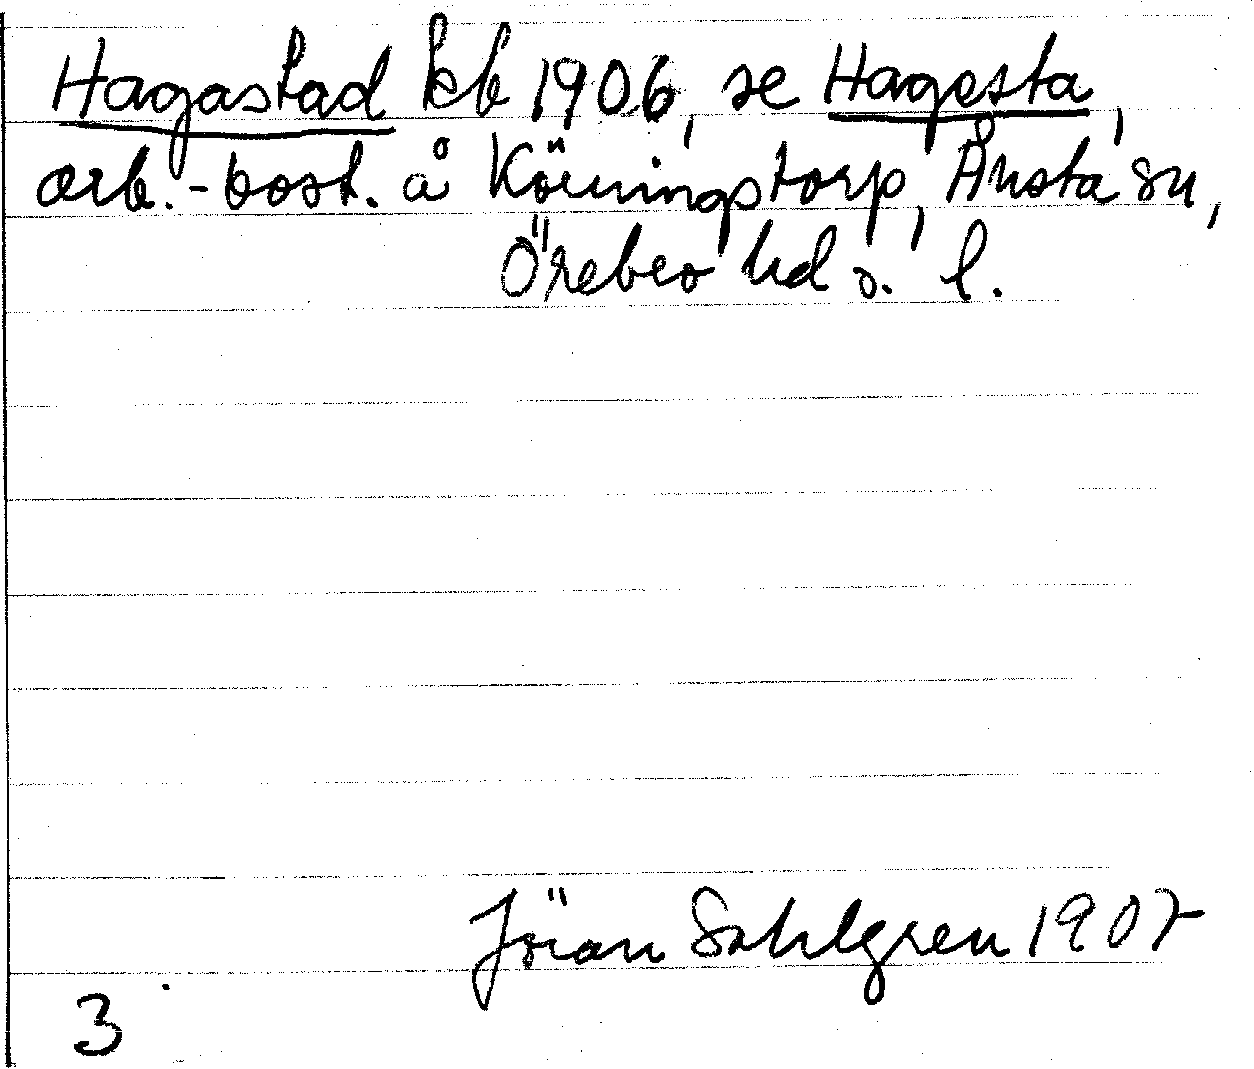 Hagastad kb 1906, se Hagesta,
arb.-bost. å Körningstorp, Ånsta sn,
Örebro hd o. l.
Jöran Sahlgren 1907
3